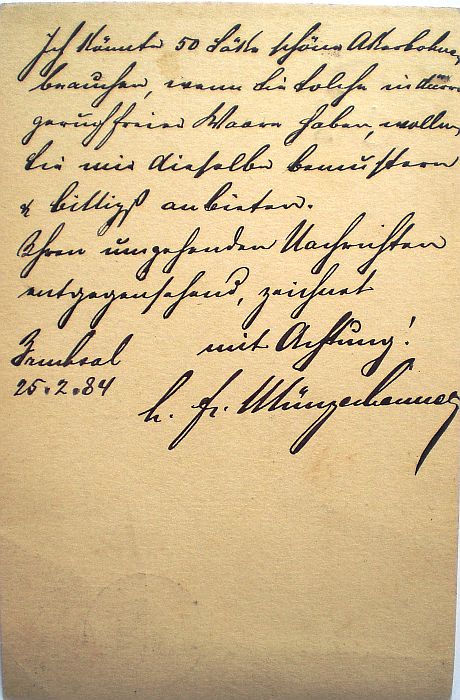 Ich könnte 50 Säcke schöne Akerbohnen
brauchen, wenn Sie solche in
geruchfreier Waare haben, wollen
Sie mir dieselbe bemustern
& billigst anbieten.
Ihren umgehenden Nachrichten
entgegensehend, zeichnet
mit Achtung!
Bruchsal
25.2.84